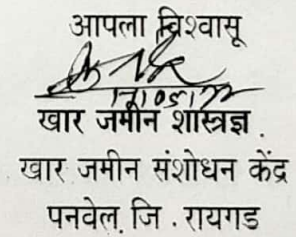 आपला विश्वासू
खार जमीन शास्त्रज्ञ .
खार जमीन संशोधन केंद्र
पनवेल, जि . रायगड